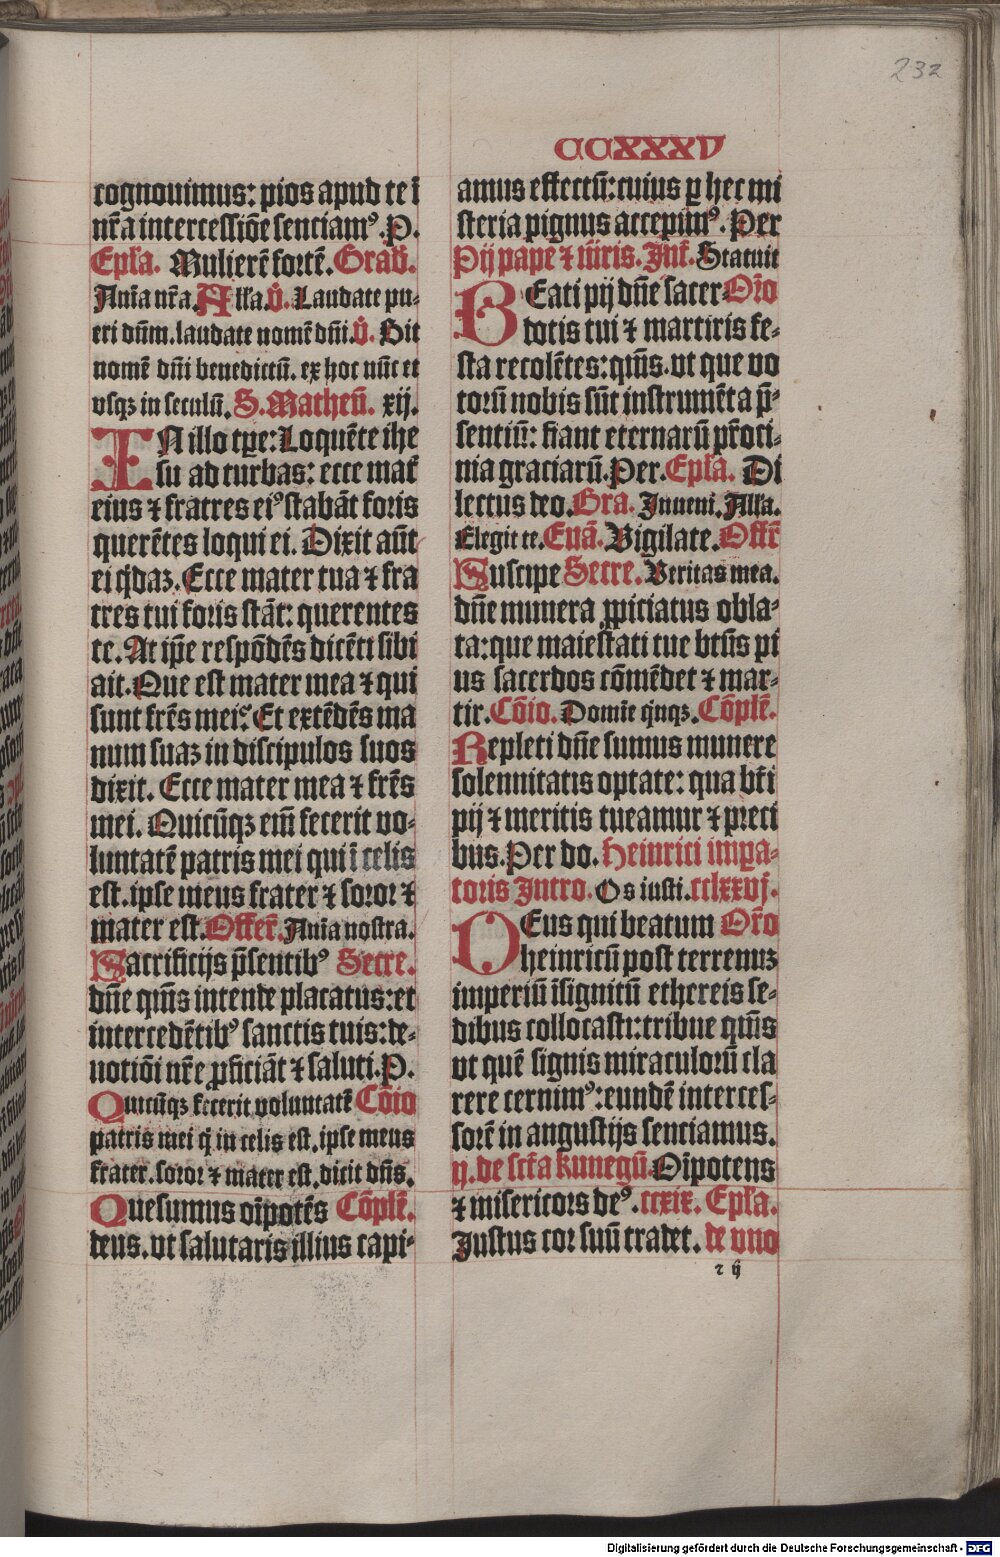 232
CCXXXV
cognouimus: pios apud te ī
nr̄a intercessiōe senciamꝰ. P.
Epl̄a. Mulierē fortē. Grad̄.
Aur̄a nr̄a. All'a. V̄. Laudate pu-
eri dn̄m. laudate nomē dn̄i. V̄. Sit
nomē dn̄i benedictū. ex hoc nūc et
vsqꝫ in seculū. S. Matheū. xij.
IN illo tꝑe: Loquēte ihe
su ad turbas: ecce mat̄
eius ⁊ fratres eiꝰ stabāt foris
querētes loqui ei. Dixit aūt
ei q̄daꝫ. Ecce mater tua ⁊ fra
tres tui foris stāt: querentes
te. At ip̄e respōdēs dicēti sibi
ait. Que est mater mea ⁊ qui
sunt fr̄es mei? Et extēdēs ma
num suaꝫ in discipulos suos
dixit. Ecce mater mea ⁊ fr̄es
mei. Quicūqꝫ em̄ fecerit vo-
luntatē patris mei qui ī celis
est. ipse meus frater ⁊ soror ⁊
mater est. Offer̄. Aui̅a nostra.
Sacrificijs p̄sentibꝰ Secre.
dn̄e qm̄s intende placatus: et
intercedētibꝰ sanctis tuis: de-
uotiōi nr̄e ꝓficiāt ⁊ saluti. P.
Quicūqꝫ fecerit voluntatē Cōio
patris mei q̄ in celis est. ipse meus
frater. soror ⁊ mater est. dicit dn̄s.
Quesumus oi̅potēs Cōplē.
deus. vt salutaris illius capi-
amus effectū: cuius ꝑ hec mi
steria pignus accepimꝰ. Per
Pij pape ⁊ m̄iris. Int̄. Statuit
BEati pij dn̄e sacer Or̄o
dotis tui ⁊ martiris fe-
sta recolētes: qm̄s. vt que vo
torū nobis sūt instrumēta p̄-
sentiū: fiant eternarū pr̄oci-
nia graciarū. Per. Epl̄a. Di
lectus deo. Gra. Inueni. All'a.
Elegit te. Euā. Vigilate. Offr̄
Suscipe Secre. Veritas mea.
dn̄e munera ꝓpiciatus obla-
ta: que maiestati tue bt̄us pi
us sacerdos cōmēdet ⁊ mar-
tir. Cōio. Domīe q̄nqꝫ. Cōplē.
Repleti dn̄e sumus munere
solennitatis optate: qua bt̄i
pij ⁊ meritis tueamur ⁊ preci
bus. Per do. Heinrici imꝑa-
toris Intro. Os iusti. cclxxvj.
DEus qui beatum Or̄o
heinricū post terrenuꝫ
imperiū īsignitū ethereis se-
dibus collocasti: tribue qm̄s
vt quē signis miraculorū cla
rere cernimꝰ: eundē interces-
sorē in angustijs senciamus.
q̄. de sct̄a kunegū. Oi̅potens
⁊ misericors deꝰ. ccxix. Epl̄a.
Iustus cor suū tradet. de vno
z ij
Digitalisierung gefördert durch die Deutsche Forschungsgemeinschaft - DFG